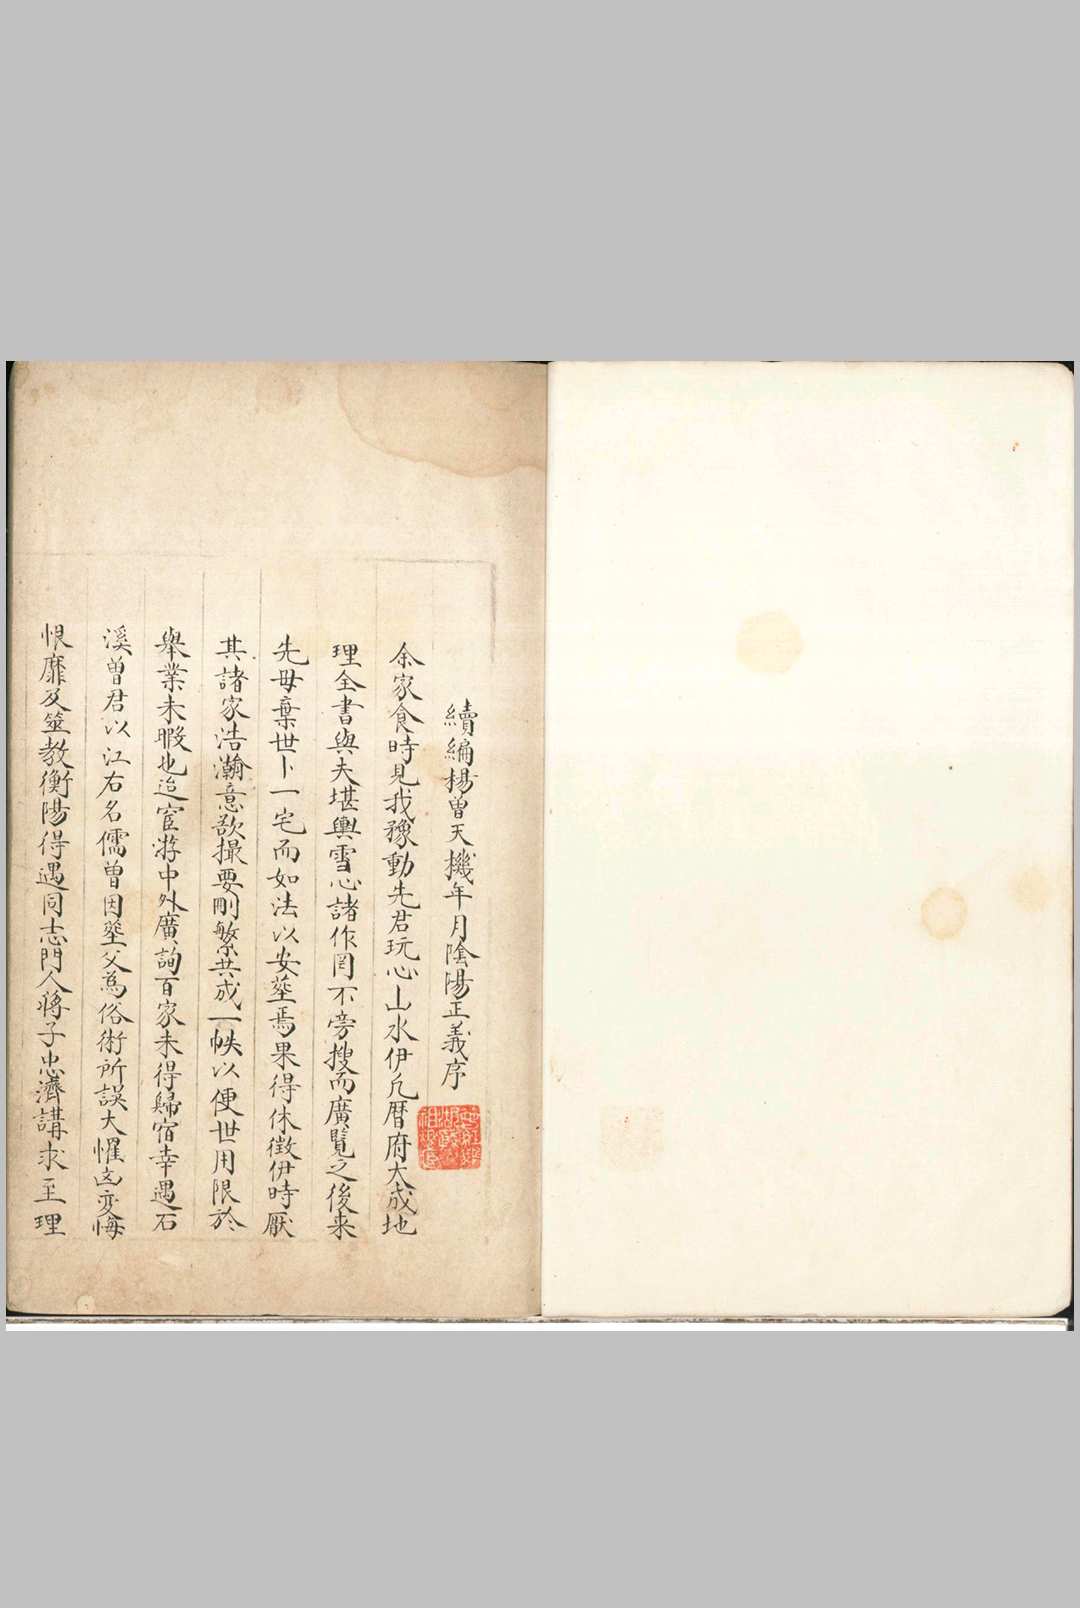 續編楊曾天機年月陰陽正義序
余家食時見我豫動先君玩心山水伊凡曆府大成地
理全書與夫堪輿雪心諸作罔不旁搜而廣覧之後来
先母棄世卜一宅而如法以安塟焉果得休徵伊時厭
其諸家浩瀚意欲撮要刪繁共成一帙以便世用限於
舉業未暇也迨宦游中外廣詢百家未得歸宿幸遇石
溪曾君以江右名儒曾因塟父為俗術所誤大懼凶变悔
恨靡及筮教衡陽得遇同志門人蔣子忠濟講求至理